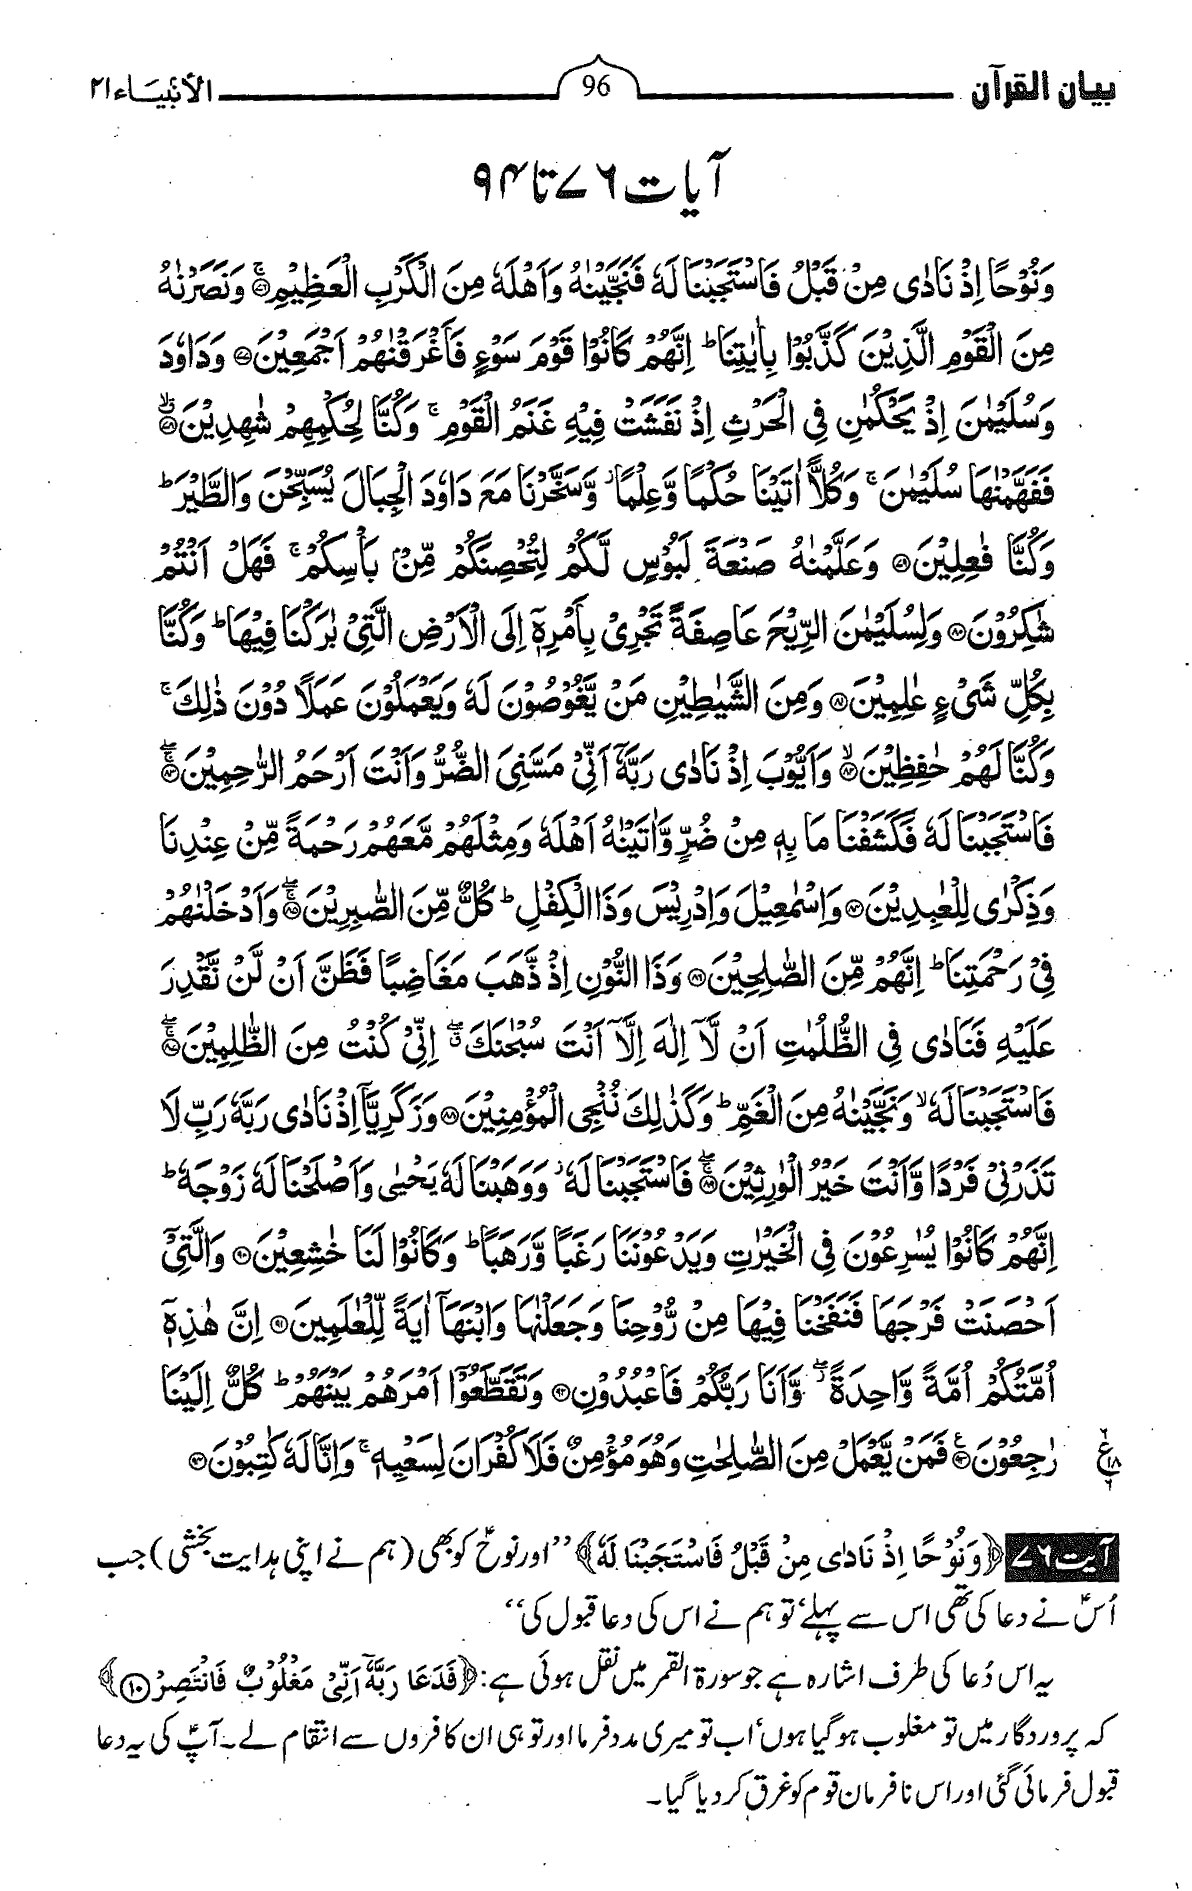 بيان القرآن 96 الأنبيَاء ۲۱
آیات ۷۶ تا ۹۴
وَنُوْحًا اِذْ نَادٰى مِنْ قَبْلُ فَاسْتَجَبْنَا لَهٗ فَنَجَّيْنٰهُ وَاَهْلَهٗ مِنَ الْكَرْبِ الْعَظِيْمِ ۚ﴿۷۶﴾ وَنَصَرْنٰهُ
مِنَ الْقَوْمِ الَّذِيْنَ كَذَّبُوْا بِاٰيٰتِنَا ؕ اِنَّهُمْ كَانُوْا قَوْمَ سَوْءٍ فَاَغْرَقْنٰهُمْ اَجْمَعِيْنَ ﴿۷۷﴾ وَدَاوٗدَ
وَسُلَيْمٰنَ اِذْ يَحْكُمٰنِ فِي الْحَرْثِ اِذْ نَفَشَتْ فِيْهِ غَنَمُ الْقَوْمِ ۚ وَكُنَّا لِحُكْمِهِمْ شٰهِدِيْنَ ۙ﴿۷۸﴾
فَفَهَّمْنٰهَا سُلَيْمٰنَ ۚ وَكُلًّا اٰتَيْنَا حُكْمًا وَّعِلْمًا ؗ وَّسَخَّرْنَا مَعَ دَاوٗدَ الْجِبَالَ يُسَبِّحْنَ وَالطَّيْرَ ؕ
وَكُنَّا فٰعِلِيْنَ ﴿۷۹﴾ وَعَلَّمْنٰهُ صَنْعَةَ لَبُوْسٍ لَّكُمْ لِتُحْصِنَكُمْ مِّنْۢ بَاْسِكُمْ ۚ فَهَلْ اَنْتُمْ
شٰكِرُوْنَ ﴿۸۰﴾ وَلِسُلَيْمٰنَ الرِّيْحَ عَاصِفَةً تَجْرِيْ بِاَمْرِهٖٓ اِلَى الْاَرْضِ الَّتِيْ بٰرَكْنَا فِيْهَا ؕ وَكُنَّا
بِكُلِّ شَيْءٍ عٰلِمِيْنَ ﴿۸۱﴾ وَمِنَ الشَّيٰطِيْنِ مَنْ يَّغُوْصُوْنَ لَهٗ وَيَعْمَلُوْنَ عَمَلًا دُوْنَ ذٰلِكَ ۚ
وَكُنَّا لَهُمْ حٰفِظِيْنَ ۙ﴿۸۲﴾ وَاَيُّوْبَ اِذْ نَادٰى رَبَّهٗٓ اَنِّيْ مَسَّنِيَ الضُّرُّ وَاَنْتَ اَرْحَمُ الرّٰحِمِيْنَ ۚۖ﴿۸۳﴾
فَاسْتَجَبْنَا لَهٗ فَكَشَفْنَا مَا بِهٖ مِنْ ضُرٍّ وَّاٰتَيْنٰهُ اَهْلَهٗ وَمِثْلَهُمْ مَّعَهُمْ رَحْمَةً مِّنْ عِنْدِنَا
وَذِكْرٰى لِلْعٰبِدِيْنَ ﴿۸۴﴾ وَاِسْمٰعِيْلَ وَاِدْرِيْسَ وَذَا الْكِفْلِ ؕ كُلٌّ مِّنَ الصّٰبِرِيْنَ ۚۖ﴿۸۵﴾ وَاَدْخَلْنٰهُمْ
فِيْ رَحْمَتِنَا ؕ اِنَّهُمْ مِّنَ الصّٰلِحِيْنَ ﴿۸۶﴾ وَذَا النُّوْنِ اِذْ ذَّهَبَ مُغَاضِبًا فَظَنَّ اَنْ لَّنْ نَّقْدِرَ
عَلَيْهِ فَنَادٰى فِي الظُّلُمٰتِ اَنْ لَّآ اِلٰهَ اِلَّآ اَنْتَ سُبْحٰنَكَ ۖۗ اِنِّيْ كُنْتُ مِنَ الظّٰلِمِيْنَ ۚۖ﴿۸۷﴾
فَاسْتَجَبْنَا لَهٗ ۙ وَنَجَّيْنٰهُ مِنَ الْغَمِّ ؕ وَكَذٰلِكَ نُنْجِي الْمُؤْمِنِيْنَ ﴿۸۸﴾ وَزَكَرِيَّآ اِذْ نَادٰى رَبَّهٗ رَبِّ لَا
تَذَرْنِيْ فَرْدًا وَّاَنْتَ خَيْرُ الْوٰرِثِيْنَ ۚۖ﴿۸۹﴾ فَاسْتَجَبْنَا لَهٗ ؗ وَوَهَبْنَا لَهٗ يَحْيٰى وَاَصْلَحْنَا لَهٗ زَوْجَهٗ ؕ
اِنَّهُمْ كَانُوْا يُسٰرِعُوْنَ فِي الْخَيْرٰتِ وَيَدْعُوْنَنَا رَغَبًا وَّرَهَبًا ؕ وَكَانُوْا لَنَا خٰشِعِيْنَ ﴿۹۰﴾ وَالَّتِيْٓ
اَحْصَنَتْ فَرْجَهَا فَنَفَخْنَا فِيْهَا مِنْ رُّوْحِنَا وَجَعَلْنٰهَا وَابْنَهَآ اٰيَةً لِّلْعٰلَمِيْنَ ﴿۹۱﴾ اِنَّ هٰذِهٖٓ
اُمَّتُكُمْ اُمَّةً وَّاحِدَةً ۖؗ وَّاَنَا رَبُّكُمْ فَاعْبُدُوْنِ ﴿۹۲﴾ وَتَقَطَّعُوْٓا اَمْرَهُمْ بَيْنَهُمْ ؕ كُلٌّ اِلَيْنَا
رٰجِعُوْنَ ﴿۹۳﴾ۧ فَمَنْ يَّعْمَلْ مِنَ الصّٰلِحٰتِ وَهُوَ مُؤْمِنٌ فَلَا كُفْرَانَ لِسَعْيِهٖ ۚ وَاِنَّا لَهٗ كٰتِبُوْنَ ﴿۹۴﴾
۶ ع ۱۸ ۶
آیت ۷۶ ﴿وَنُوْحًا اِذْ نَادٰى مِنْ قَبْلُ فَاسْتَجَبْنَا لَهٗ﴾ ’’اور نوحؑ کو بھی (ہم نے اپنی ہدایت بخشی) جب
اُسؑ نے دعا کی تھی اس سے پہلے‘ تو ہم نے اس کی دعا قبول کی‘‘
یہ اس دُعا کی طرف اشارہ ہے جو سورۃ القمر میں نقل ہوئی ہے: ﴿فَدَعَا رَبَّهٗٓ اَنِّيْ مَغْلُوْبٌ فَانْتَصِرْ ﴿۱۰﴾﴾
کہ پروردگار میں تو مغلوب ہو گیا ہوں‘ اب تو میری مدد فرما اور تو ہی ان کافروں سے انتقام لے۔ آپؑ کی یہ دعا
قبول فرمائی گئی اور اس نافرمان قوم کو غرق کر دیا گیا۔